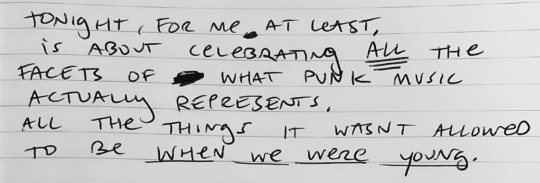 TONIGHT, FOR ME AT LEAST,
IS ABOUT CELEBRATING ALL THE
FACETS OF WHAT PUNK MUSIC
ACTUALLY REPRESENTS.
ALL THE THINGS IT WASNT ALLOWED
TO BE WHEN WE WERE YOUNG.